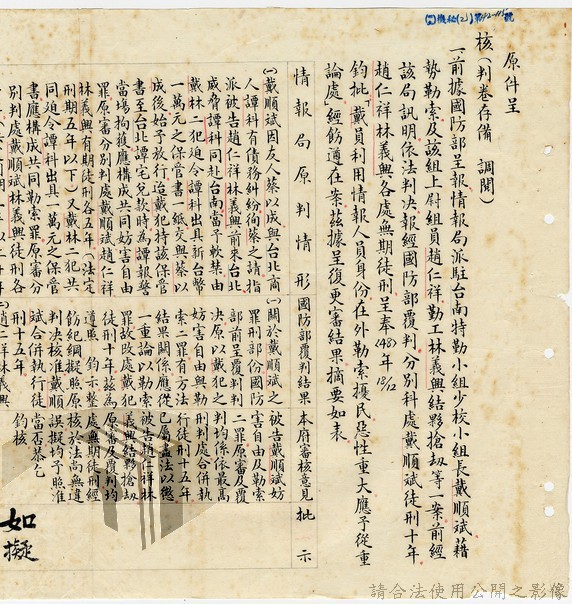 原件呈
核(判卷存備 調閱)
一、前據國防部呈報情報局派駐台南特勤小組少校小組長戴順斌藉
勢勒索及該組上尉組員趙仁祥勤工林義興結夥搶劫等一案前經
該局訊明依法判決報經國防部覆判分別科處戴順斌徒刑十年
趙仁祥林義興各處無期徒刑呈奉(48)年18/12
鈞批「戴員利用情報人員身份在外勒索擾民惡性重大應予從重
論處」經飭遵在案茲據呈復更審結果摘要如表
情報局原判情形
(一)戴順斌因友人蔡以成與台北商
人譚科有債務糾紛徇蔡之請指
派被告趙仁祥林義興前來台北
脅迫譚科同赴台南當予軟禁由
戴林二犯迫令譚科出具新台幣
一萬元之保管書一紙交與蔡以
成後始予放行迨戴犯持該保管
書至台北譚宅兌款時為譚報警
當場拘獲應構成共同妨害自由
罪原審分別判處戴順斌趙仁祥
林義興有期徒刑各五年(法定
刑期五年以下)又戴林二犯共
同迫令譚科出具一萬元之保管
書應構成共同勒索罪原審分
別判處戴順斌林義興徒刑各
國防部覆判結果
(一)關於戴順斌之
罪刑部份國防
部前呈覆判判
決原以戴犯之
妨害自由與勒
索二罪有方法
結果關係應從
一重論以勒索
罪故改處戴犯
徒刑十年茲為
遵照 鈞示整
飭紀綱擬照原
判決核准戴順
斌合併執行徒
刑十五年
(二)趙仁祥林義興
本府審核意見
被告戴順斌妨
害自由及勒索
二罪原審及覆
判均係依最高
刑判處合併執
行徒刑十五年
已屬盡法以懲
被告趙仁祥林
義興結夥搶劫
原審及覆判均
處無期徒刑經
核於法尚無違
誤擬均予照准
當否恭乞
鈞核
批示
如擬
請合法使用公開之影像